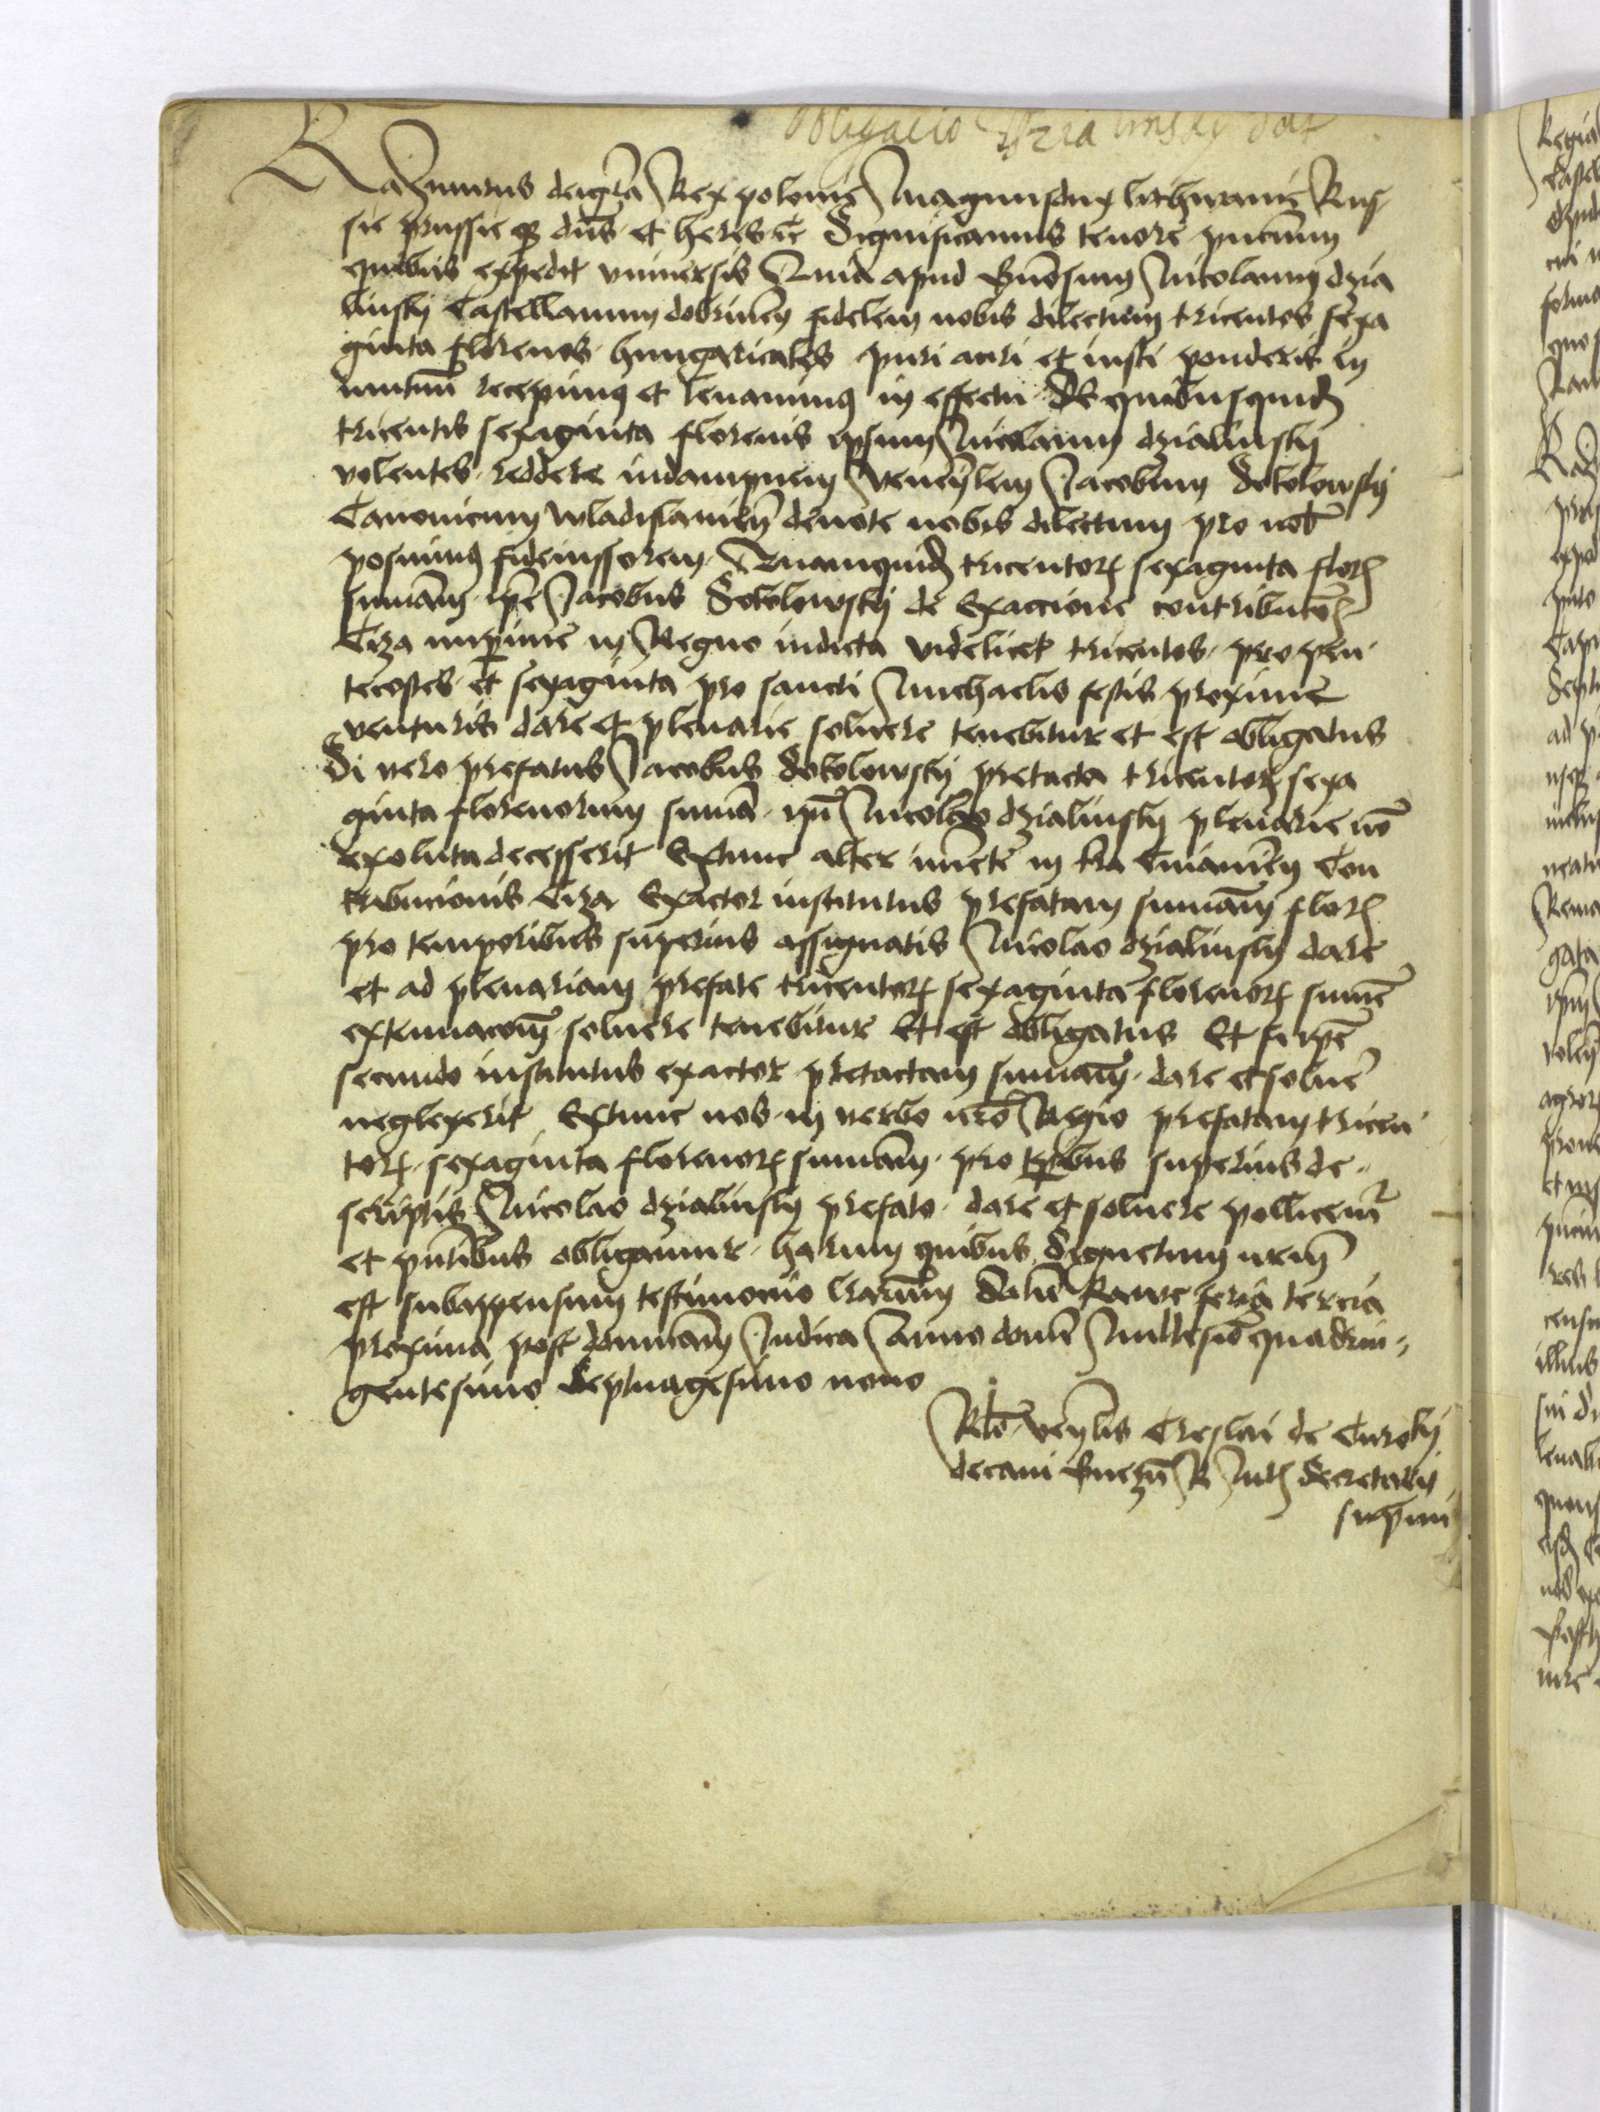 Obligacio Dzialinsky dat
Kazimirus dei gr̃a Rex polonie Magnus dux lithwanie Rus
sie prussie qz dñs et heres ꝛc̃ Significamus tenore pñcium
quibus expedit vniversis Quia apud Gñosum Nicolaum dzia
linsky Castellanum dobrinẽn fidelem nobis dilectum tricentos sexa
ginta florenos hungaricales puri auri et iusti ponderis in
mutuũ recepimus et levauimus in effectu De quibusquidẽ
tricentis sexaginta florenis ipsum Nicolaum dzialinsky
volentes reddere indampnem Venẽlem Jacobum Sokolowsky
Canonicum wladislauiẽn deuote nobis dilectum pro nob̃
posuimus fideiussorem Quamquidẽ tricentorꝝ sexaginta florꝝ
sum̃am ip̃e Jacobus Sokolowsky de Exaccione contribucõis
Ciza nup̃rime in Regno indicta videlicet tricentos pro pen
tecostes et sexaginta pro sancti Michaelis festis proxime
venturis dare et plenarie soluere tenebitur et est obligatus
Si vero prefatus Jacobus Sokolowsky pretacta tricentorꝝ sexa
ginta florenorum sum̃a ip̃i Nicolao dzialinsky plenarie nõ
exoluta decesserit Extunc alter im̃ete in tr̃a Cuiauiẽn Con
tribucionis Ciza Exactor institutus prefatam sum̃am florꝝ
pro temporibus superius assignatis Nicolao dzialinsky dare
et ad plenariam prefate tricentorꝝ sexaginta florenorꝝ sum̃e
extenuacõem soluere tenebitur Et est obligatus Et si ip̃e
secundo institutus exactor pretactam sum̃am dare et soluẽ
neglexerit Extunc nos in verbo nr̃o Regio prefatam tricen
torꝝ sexaginta florenorꝝ sum̃am pro tp̃ibus superius de
scriptis Nicolao dzialinsky prefato dare et soluere pollicemꝰ
et pñtibus obligamur harum quibus Signetum nr̃m
est subappensum testimonio lr̃arum Datũ Rawe feria tercia
proxima post dominicã Judica Anno domĩ Millesiõ quadrin
gentesimo Septuagesimo nono
Rel̃o Veñlis Creslai de Curoswky
decani Gnezñ R Mtis Secretarij
supremi